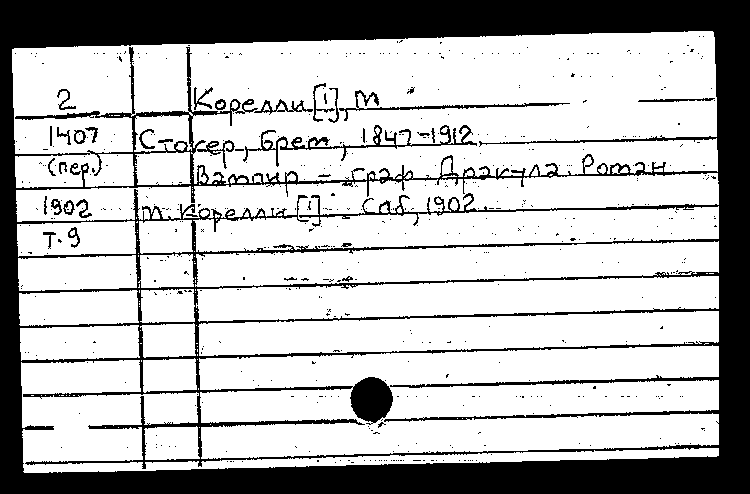 2 Корелли [!], М
1407 Стокер, Брем, 1847-1912.
(пер.) Вампир = граф Дракула. Роман
1902 М. Корелли [!] Спб, 1902.
т. 9